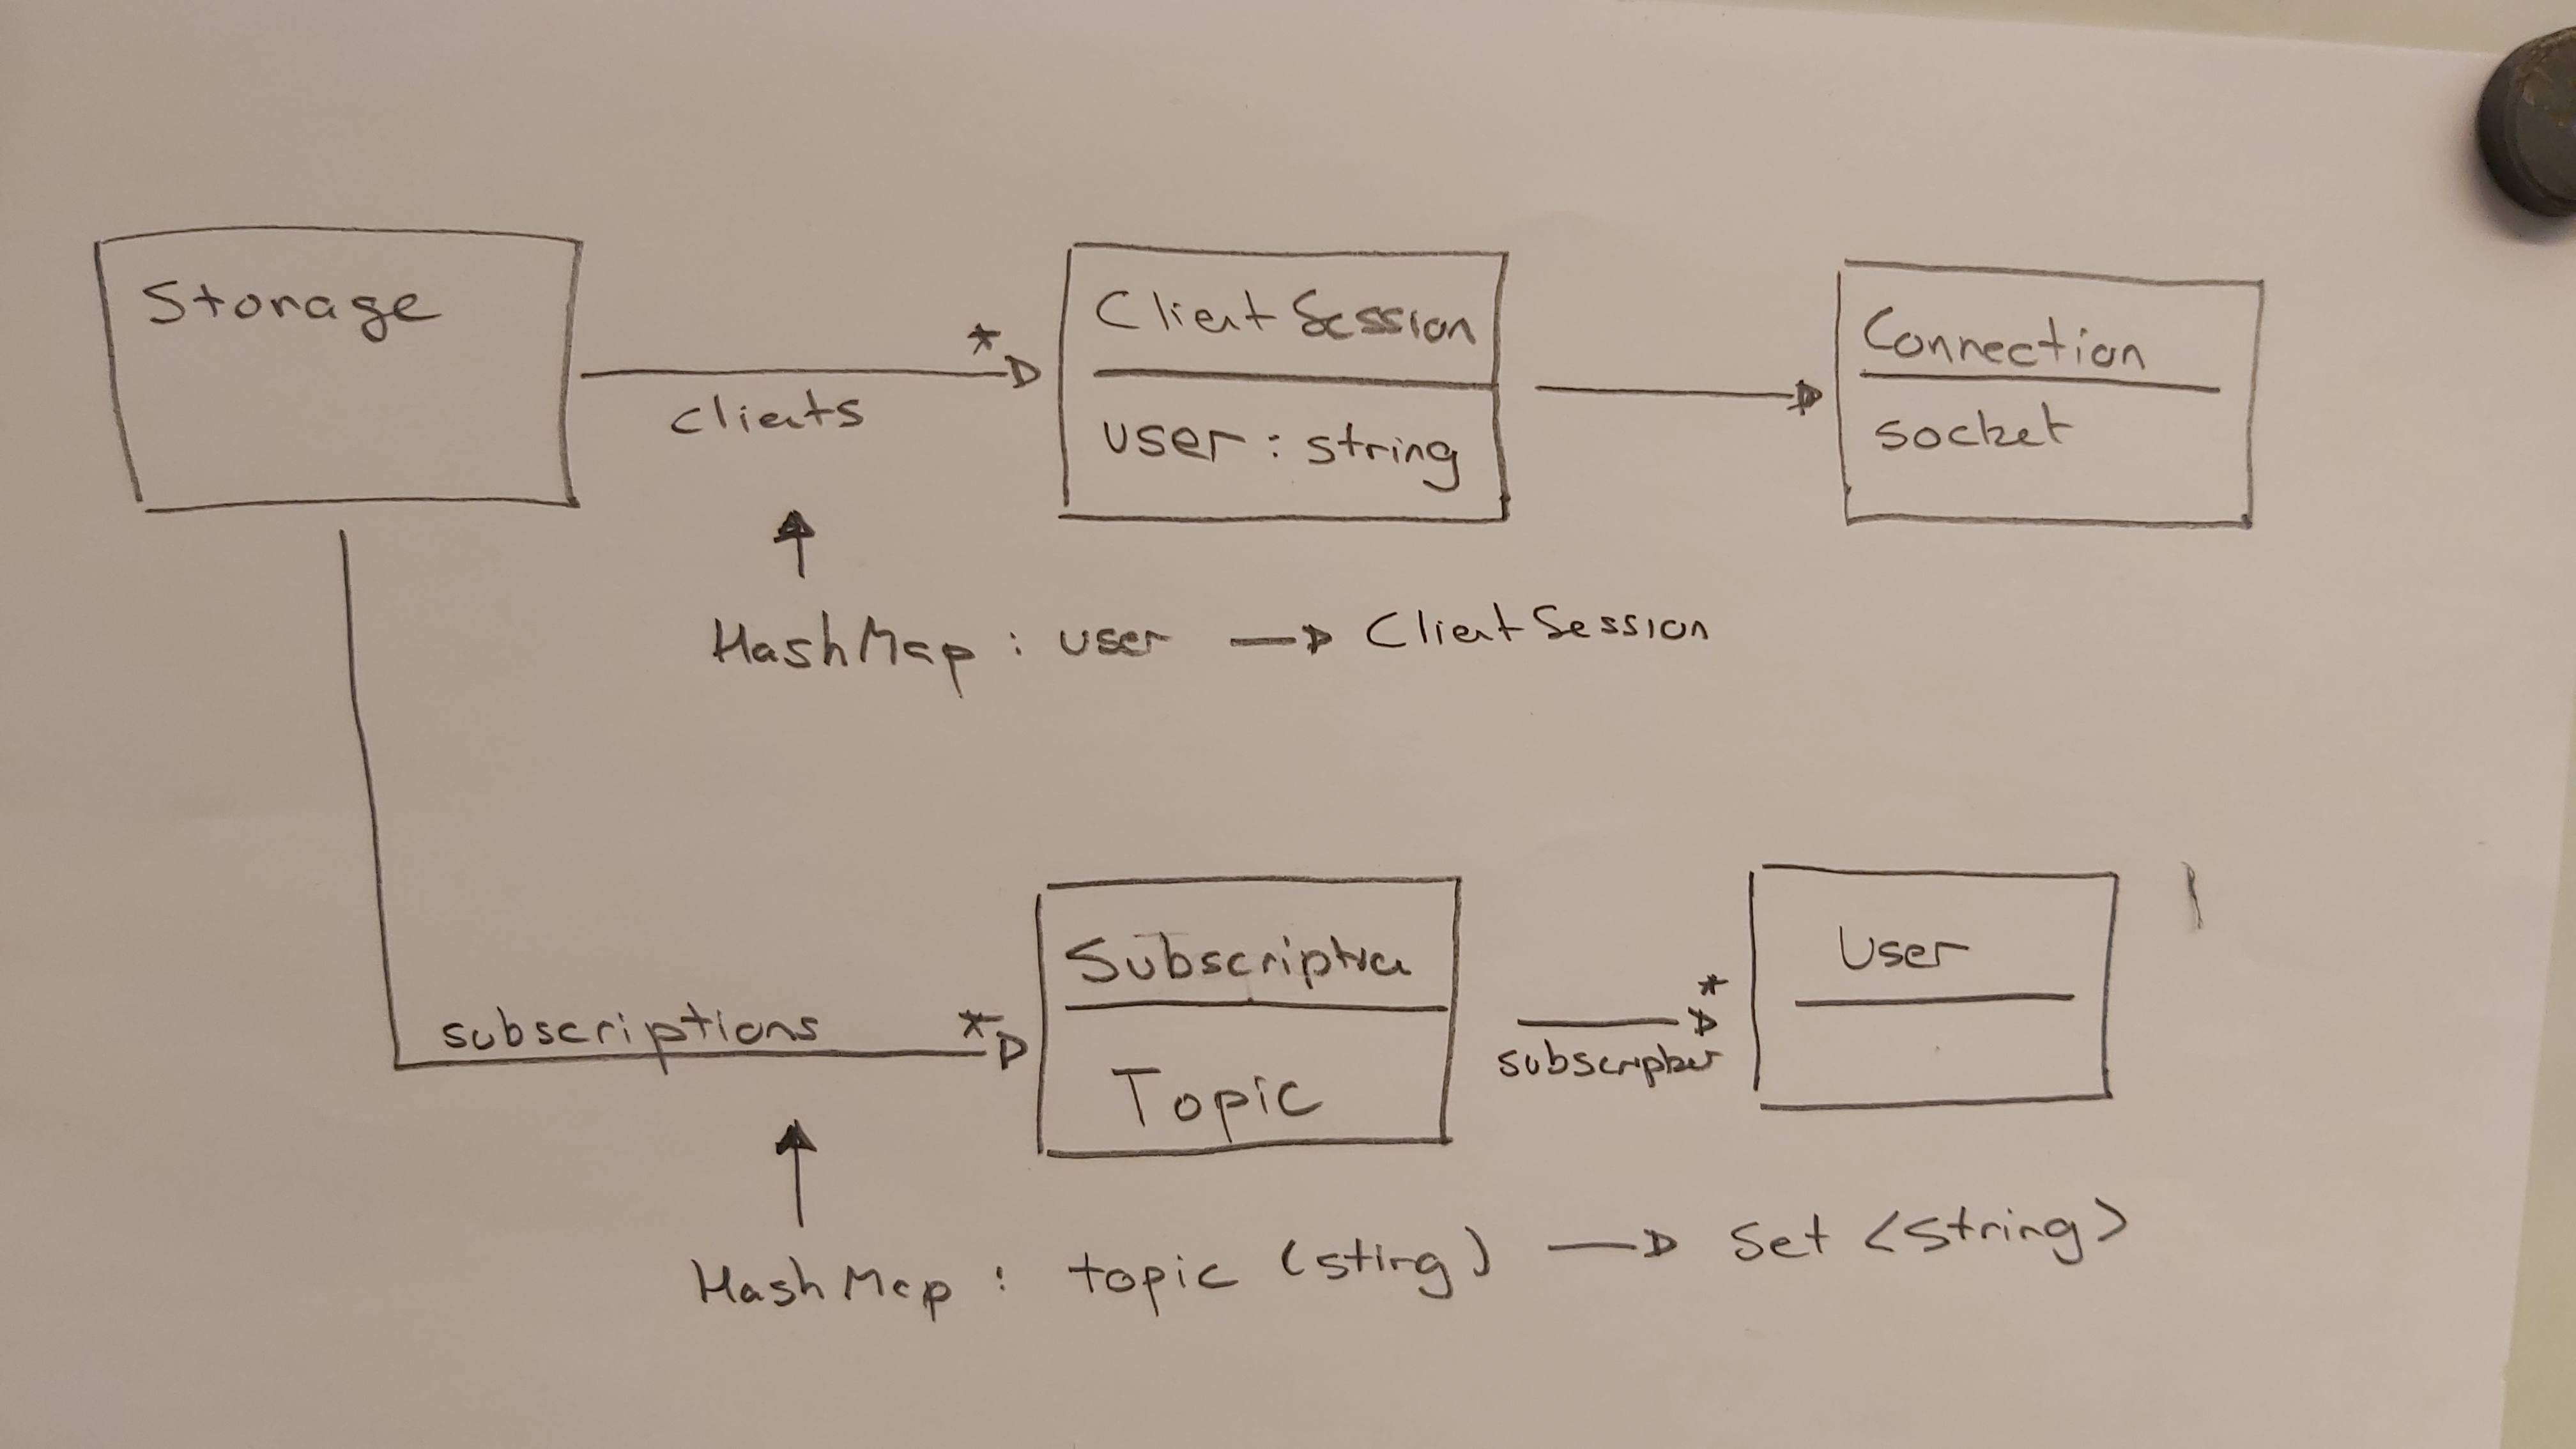 Storage
*
clients
ClientSession
user : string
Connection
socket
HashMap : user → ClientSession
subscriptions
*
Subscription
Topic
*
subscriber
User
HashMap : topic (sting) → Set <String>